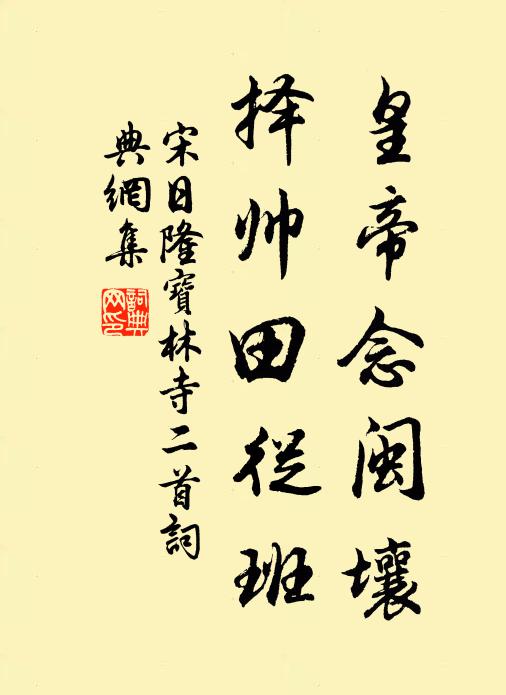 皇帝念闽壤
择帅田従班
宋日隆寶林寺二首詞
典網集
詞典
网印